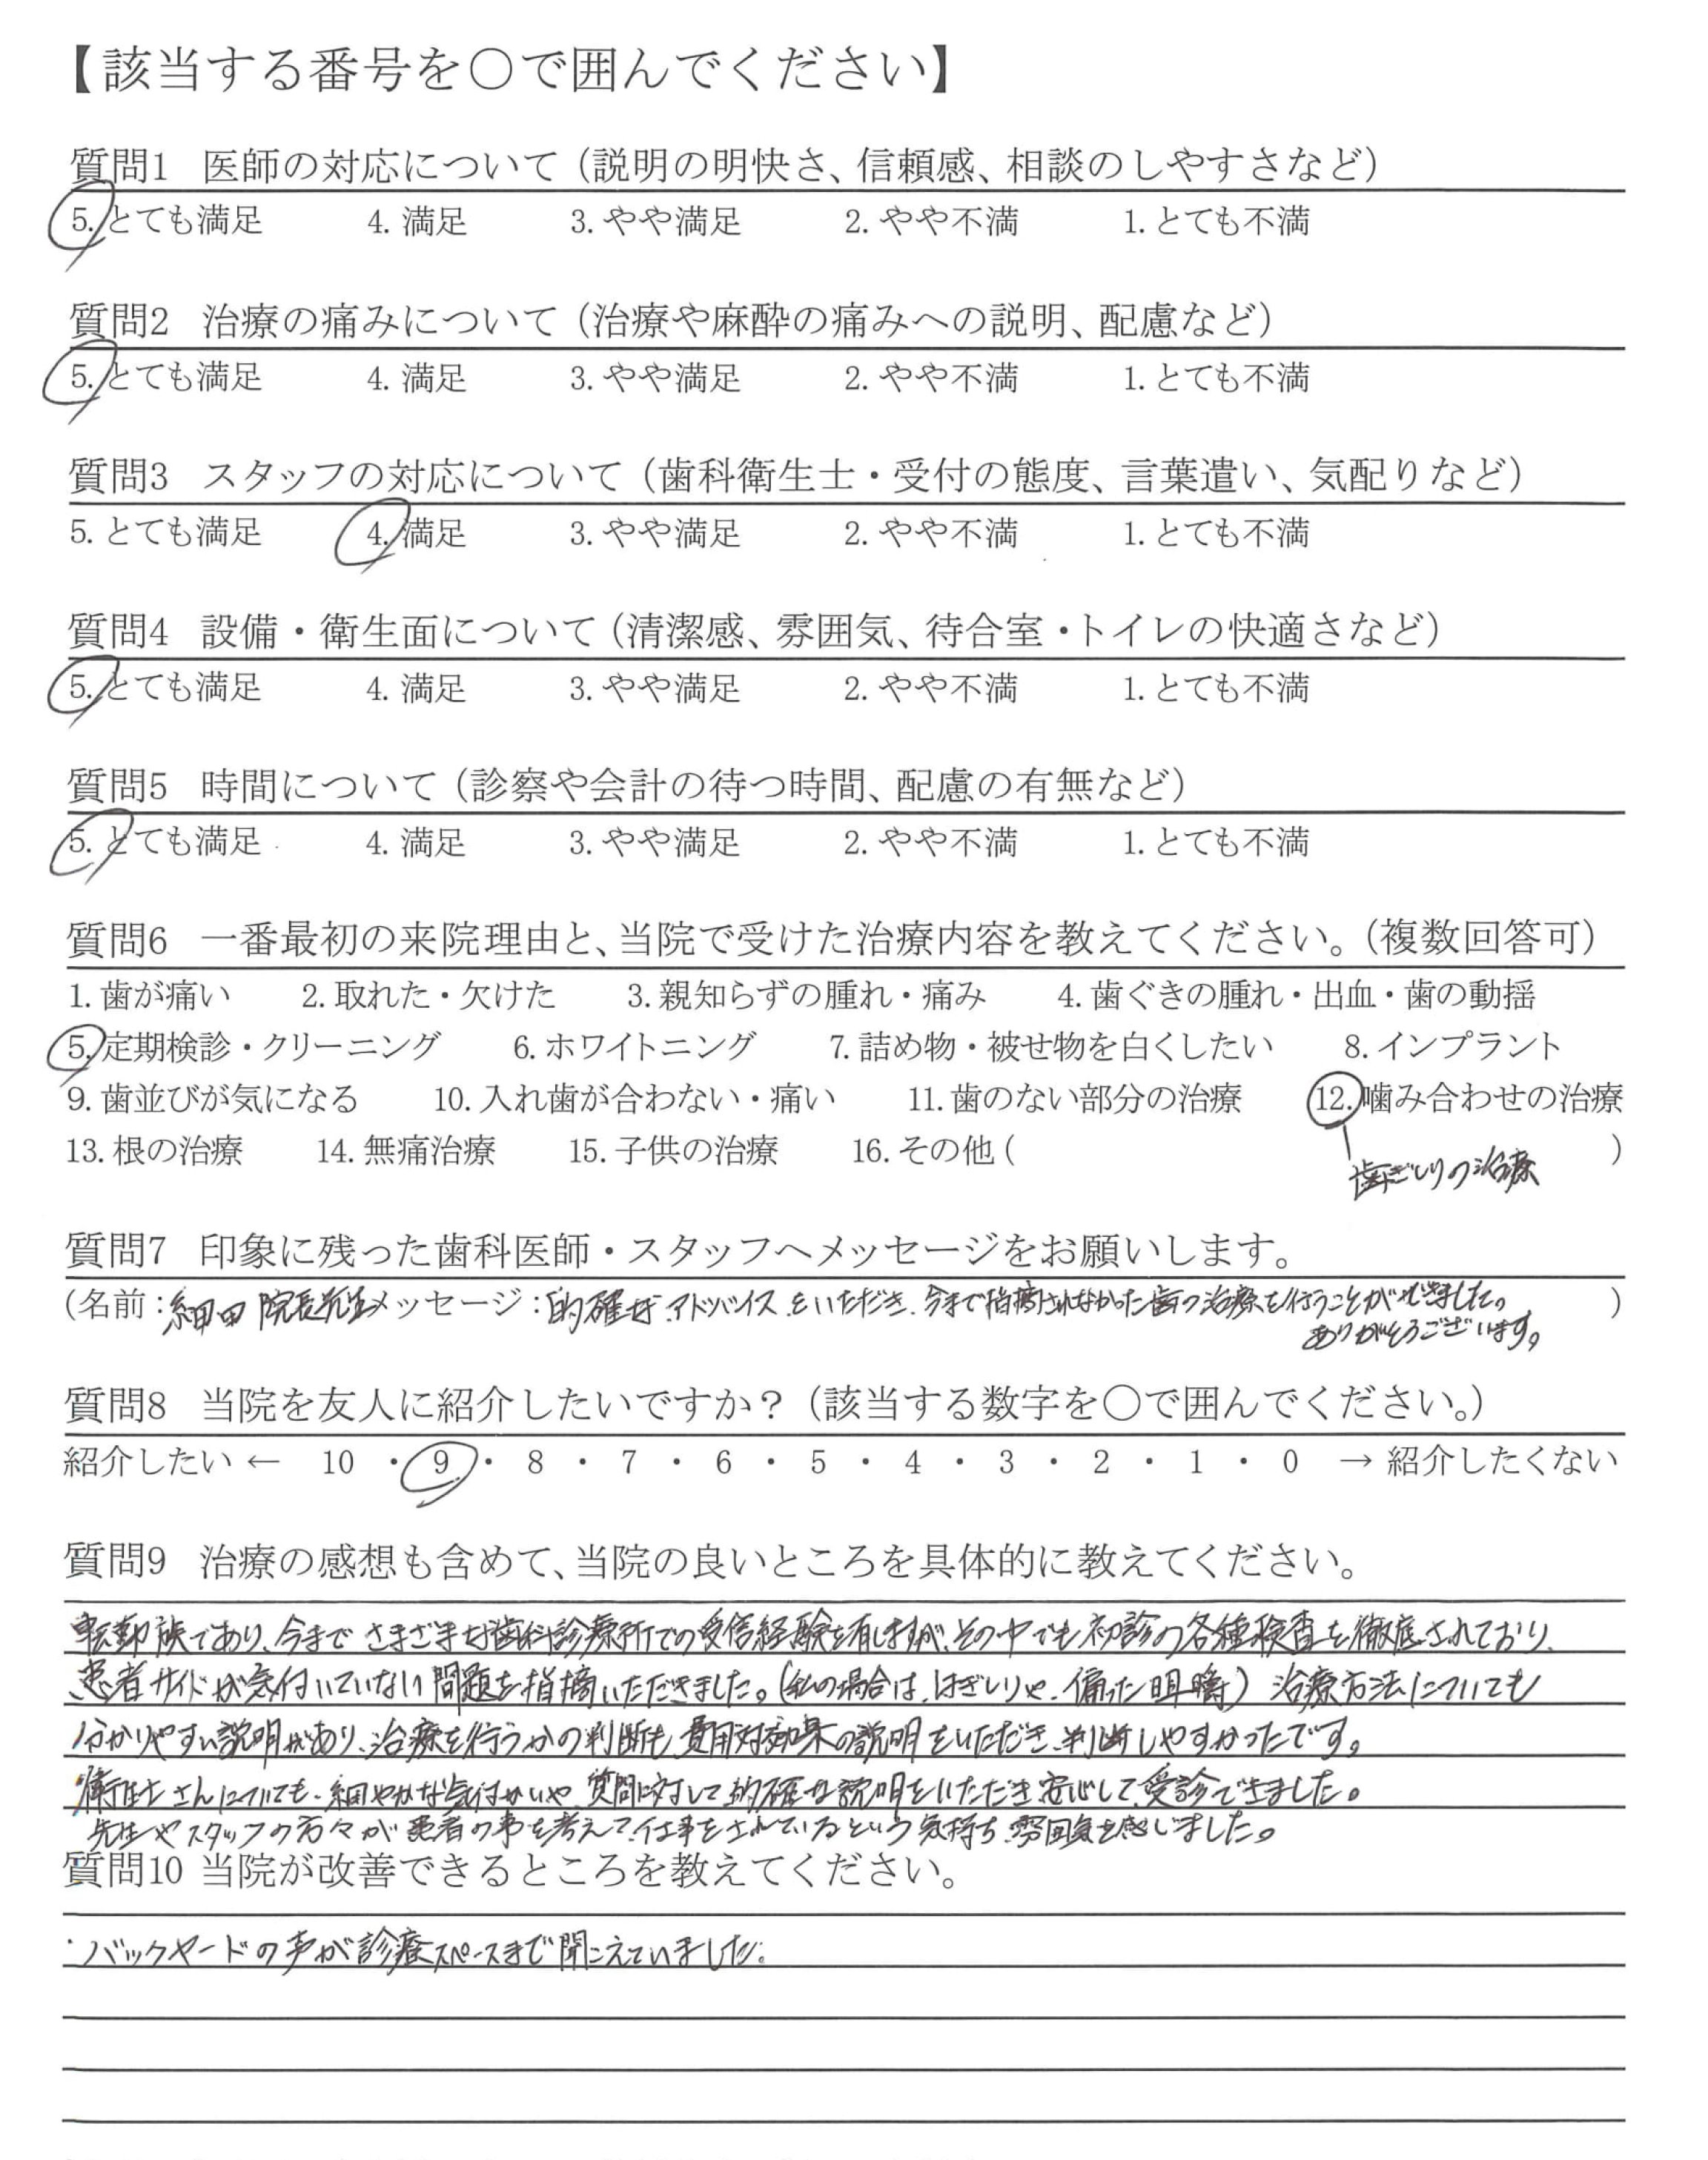 【該当する番号を〇で囲んでください】
質問1 医師の対応について（説明の明快さ、信頼感、相談のしやすさなど）
5. とても満足 4. 満足 3. やや満足 2. やや不満 1. とても不満
質問2 治療の痛みについて（治療や麻酔の痛みへの説明、配慮など）
5. とても満足 4. 満足 3. やや満足 2. やや不満 1. とても不満
質問3 スタッフの対応について（歯科衛生士・受付の態度、言葉遣い、気配りなど）
5. とても満足 4. 満足 3. やや満足 2. やや不満 1. とても不満
質問4 設備・衛生面について（清潔感、雰囲気、待合室・トイレの快適さなど）
5. とても満足 4. 満足 3. やや満足 2. やや不満 1. とても不満
質問5 時間について（診察や会計の待つ時間、配慮の有無など）
5. とても満足 4. 満足 3. やや満足 2. やや不満 1. とても不満
質問6 一番最初の来院理由と、当院で受けた治療内容を教えてください。（複数回答可）
1. 歯が痛い 2. 取れた・欠けた 3. 親知らずの腫れ・痛み 4. 歯ぐきの腫れ・出血・歯の動揺
5. 定期検診・クリーニング 6. ホワイトニング 7. 詰め物・被せ物を白くしたい 8. インプラント
9. 歯並びが気になる 10. 入れ歯が合わない・痛い 11. 歯のない部分の治療 12. 噛み合わせの治療
13. 根の治療 14. 無痛治療 15. 子供の治療 16. その他 ( )
歯ぎしりの治療
質問7 印象に残った歯科医師・スタッフへメッセージをお願いします。
(名前：細田 院長先生 メッセージ：的確なアドバイスをいただき、今まで指摘されなかった歯の治療を行うことができました。 )
ありがとうございます。
質問8 当院を友人に紹介したいですか？（該当する数字を〇で囲んでください。）
紹介したい ← 10 ・ 9 ・ 8 ・ 7 ・ 6 ・ 5 ・ 4 ・ 3 ・ 2 ・ 1 ・ 0 → 紹介したくない
質問9 治療の感想も含めて、当院の良いところを具体的に教えてください。
転勤族であり、今までさまざまな歯科診療所での受信経験を有しますが、その中でも初診の各種検査を徹底されており、
患者サイドが気付いていない問題を指摘いただきました。（私の場合は、はぎしりや、偏った咀嚼）治療方法についても
分かりやすい説明があり、治療を行うかの判断も、費用対効果の説明をいただき、判断しやすかったです。
衛生士さんについても、細やかな気付かいや、質問に対して的確な説明をいただき安心して受診できました。
先生やスタッフの方々が患者の事を考えて仕事をされているという気持ち、雰囲気を感じました。
質問10 当院が改善できるところを教えてください。
・バックヤードの声が診療スペースまで聞こえていました。